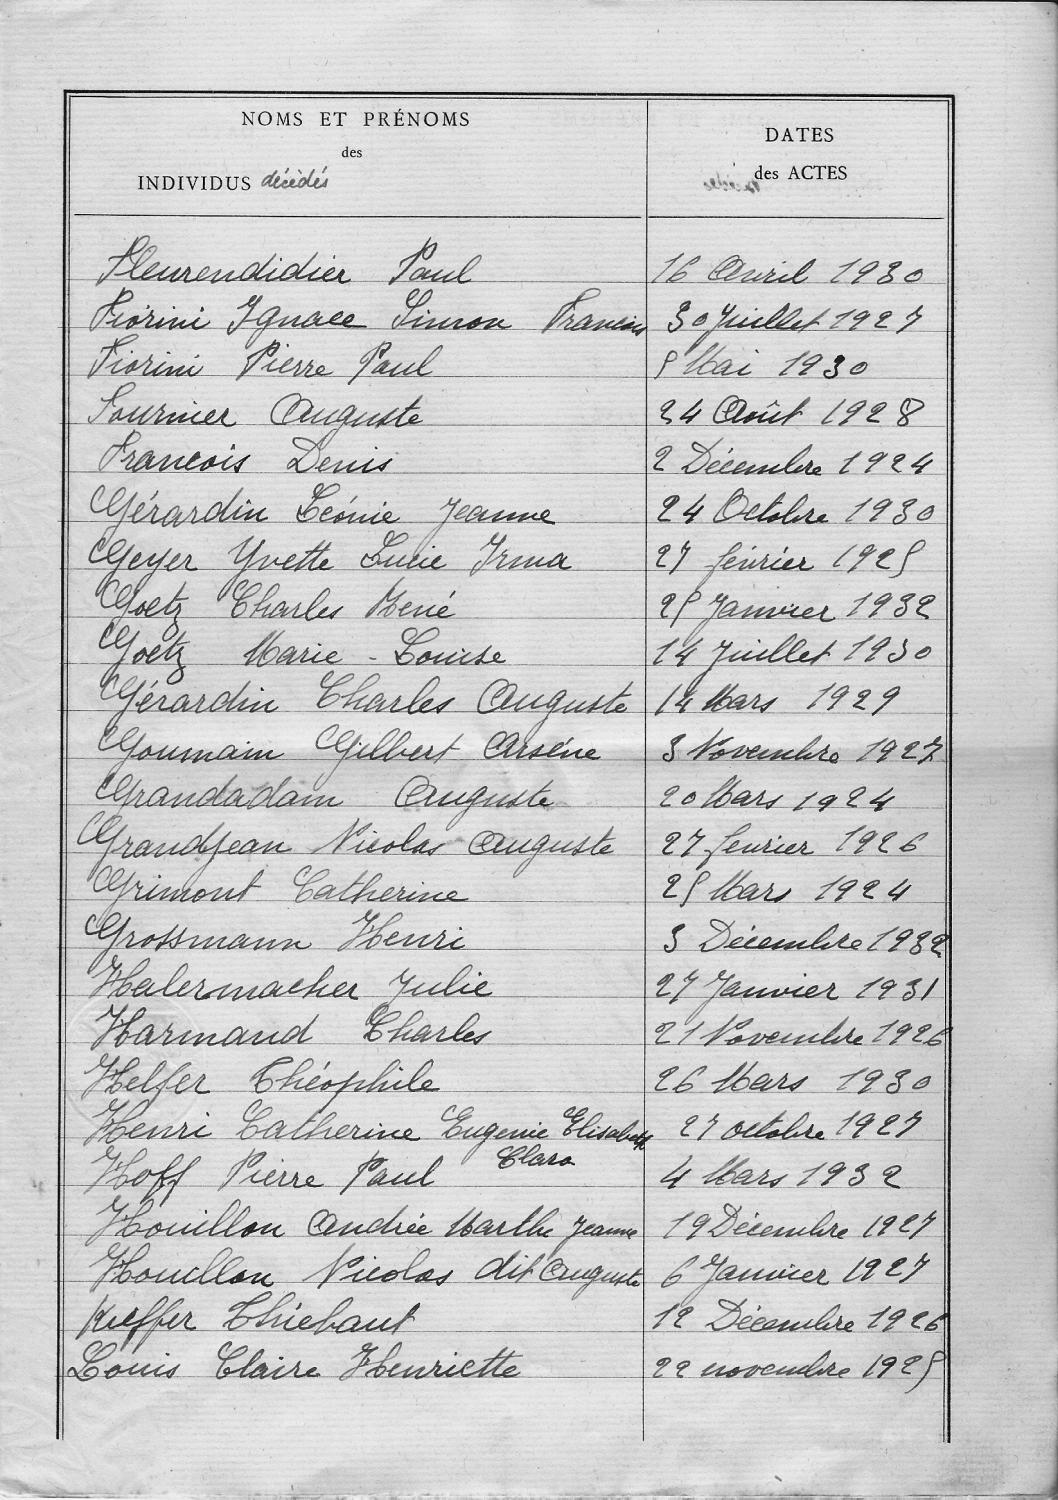 NOMS ET PRÉNOMS
des
INDIVIDUS décédés
DATES
des ACTES
Fleurendidier Paul 16 Avril 1930
Fiorini Ignace Simon Francois 30 Juillet 1927
Fiorini Pierre Paul 5 Mai 1930
Fournier Auguste 24 Août 1928
Francois Denis 2 Décembre 1924
Gérardin Léonie Jeanne 24 Octobre 1930
Geyer Yvette Lucie Irma 27 février 1925
Goetz Charles René 25 Janvier 1932
Goetz Marie-Louise 14 Juillet 1930
Gérardin Charles Auguste 14 Mars 1929
Goumain Gilbert Arsène 3 Novembre 1927
Grandadam Auguste 20 Mars 1924
Grandjean Nicolas Auguste 27 février 1926
Grimont Catherine 25 Mars 1924
Grossmann Henri 3 Décembre 1932
Halermacher Julie 27 Janvier 1931
Harmand Charles 21 Novembre 1926
Helfer Théophile 26 Mars 1930
Henri Catherine Eugenie Elisabeth 27 octobre 1927
Clara
Hoff Pierre Paul 4 Mars 1932
Houillon Andrée Marthe Jeanne 19 Décembre 1927
Houillon Nicolas dit Auguste 6 Janvier 1927
Kieffer Thiébaut 12 Décembre 1926
Louis Claire Henriette 22 novembre 1925